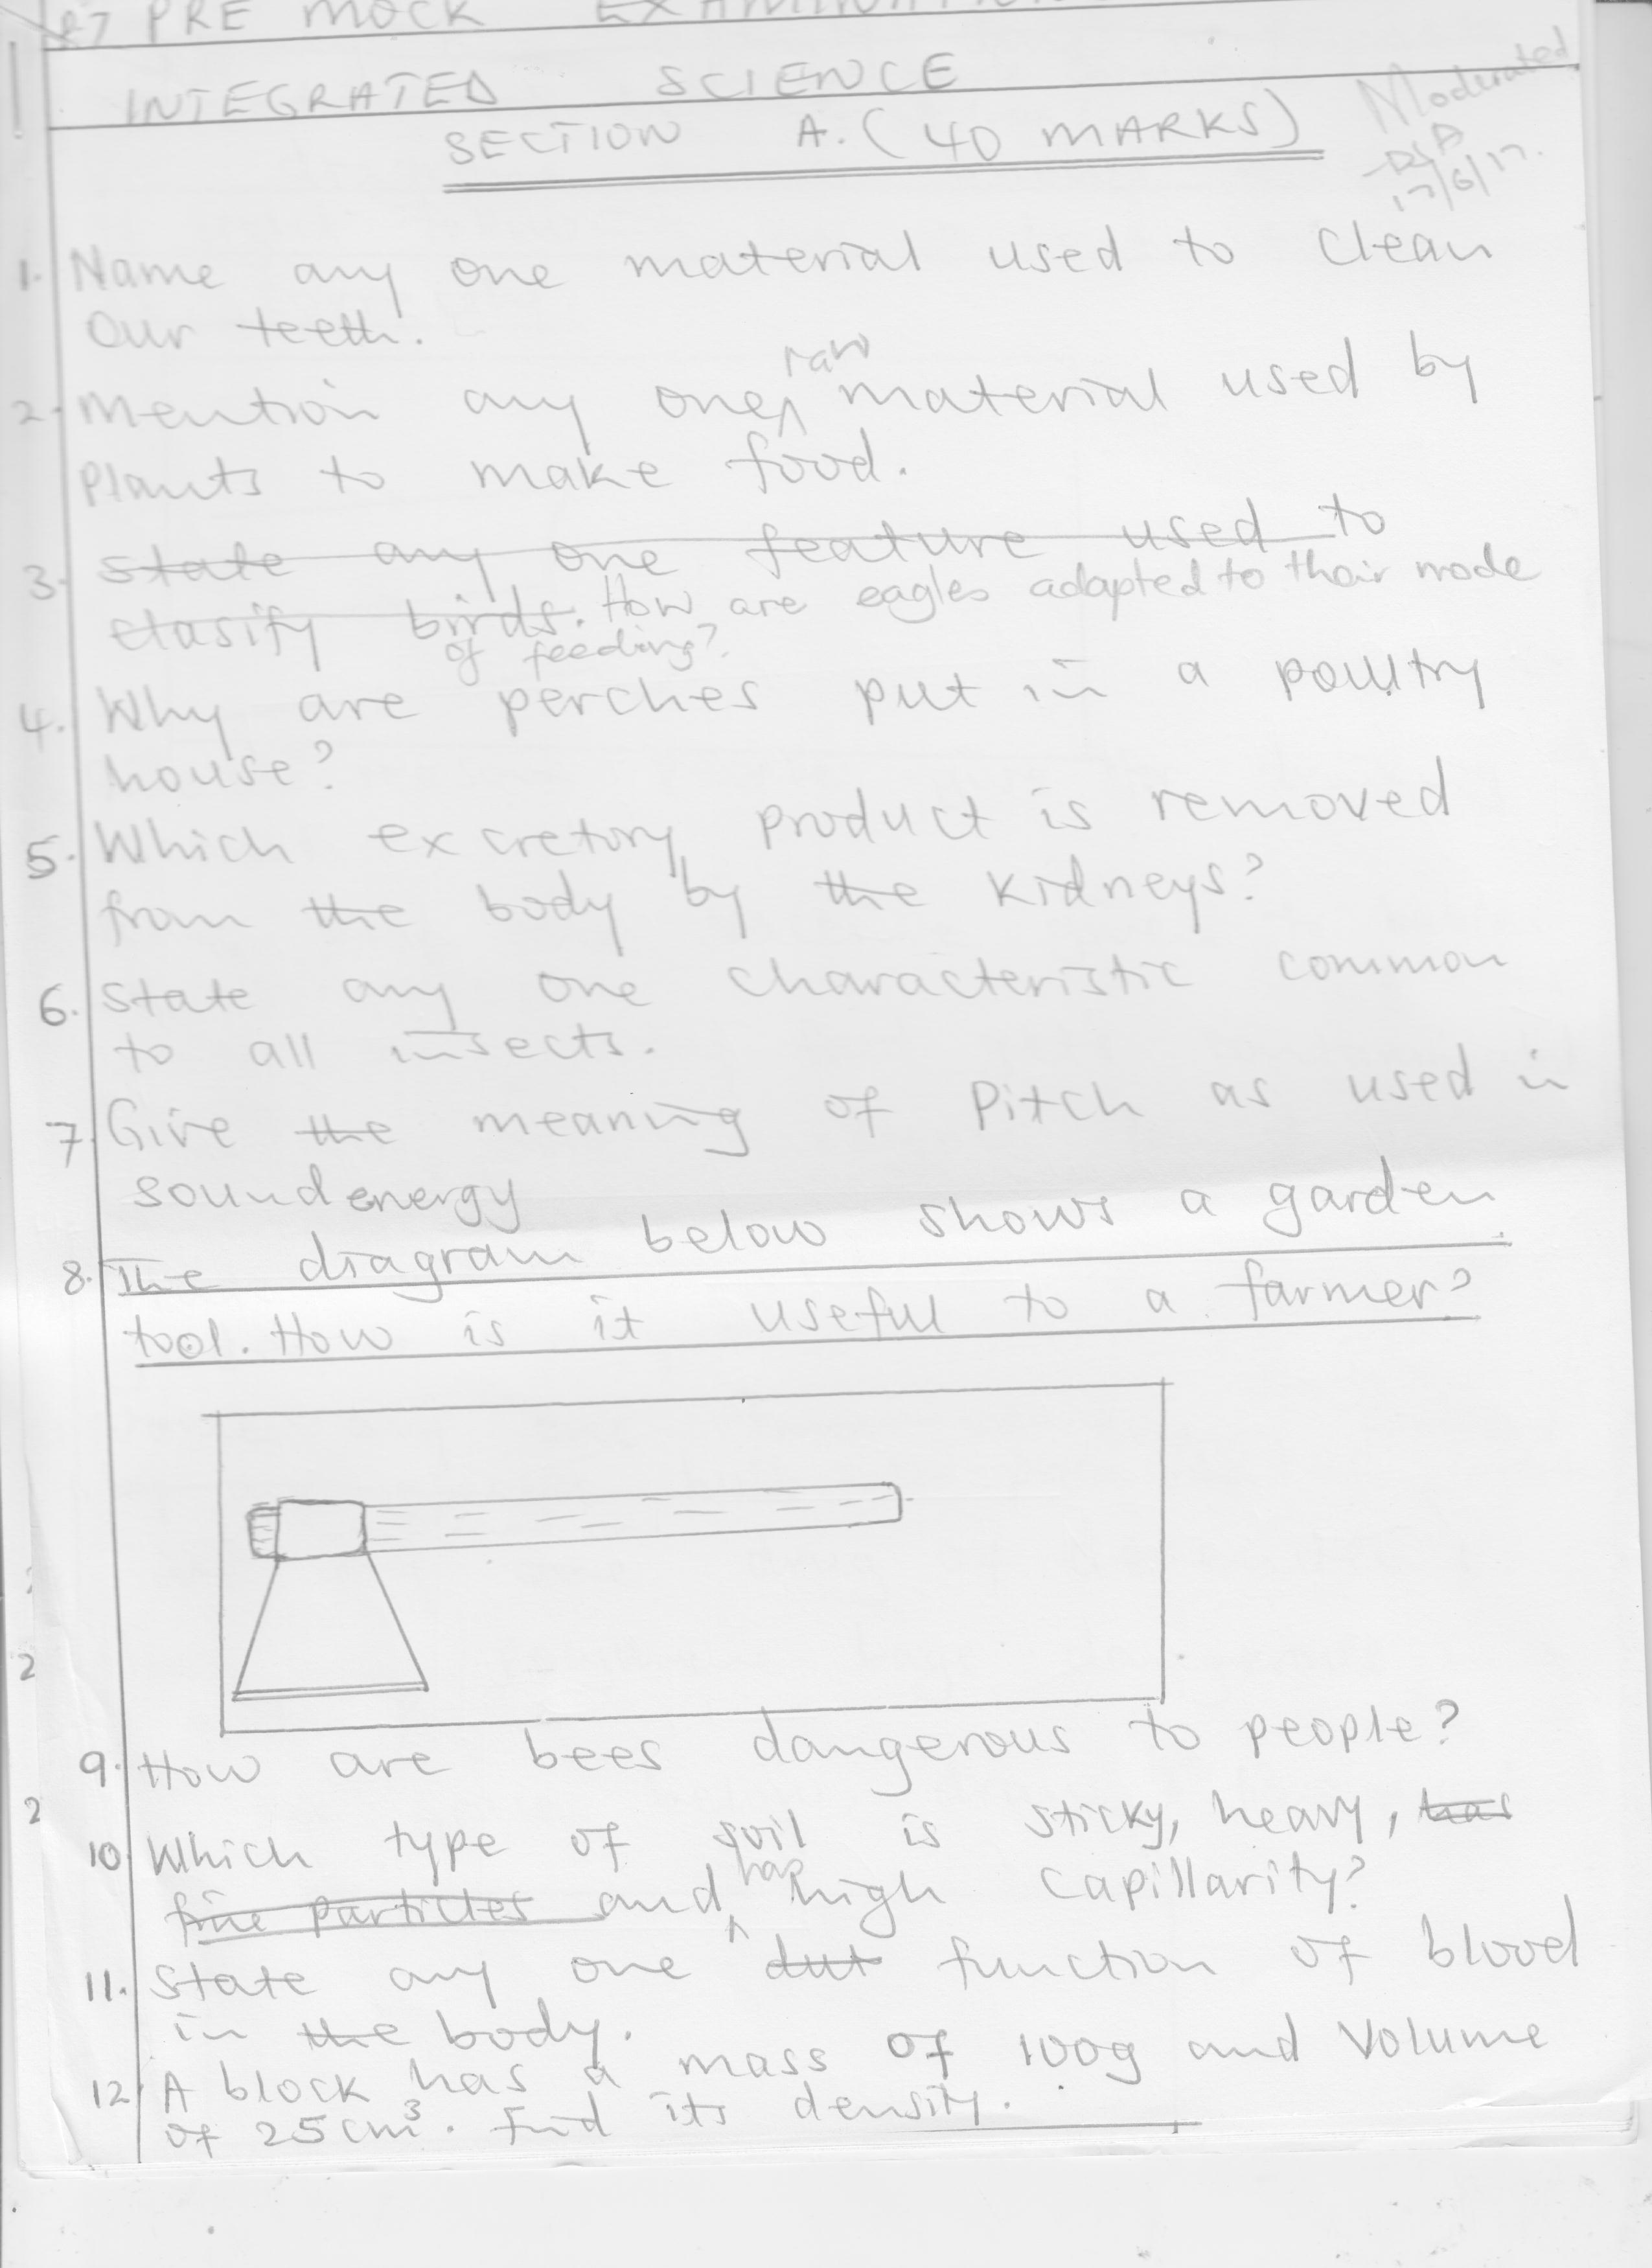 P7 PRE MOCK EXAMINATION
INTEGRATED SCIENCE
SECTION A. (40 MARKS)
Moderated
17/6/17.
1. Name any one material used to clean
our teeth.
2. Mention any one raw material used by
plants to make food.
3. State any one feature used to
clasify birds. How are eagles adapted to their mode
of feeding?
4. Why are perches put in a poultry
house?
5. Which excretory product is removed
from the body by the kidneys?
6. State any one characteristic common
to all insects.
7. Give the meaning of Pitch as used in
sound energy
8. The diagram below shows a garden
tool. How is it useful to a farmer?
9. How are bees dangerous to people?
10. Which type of soil is sticky, heavy, has
fine particles and has high capillarity?
11. State any one dut function of blood
in the body.
12. A block has a mass of 100g and Volume
of 25cm³. Find its density.
2
2